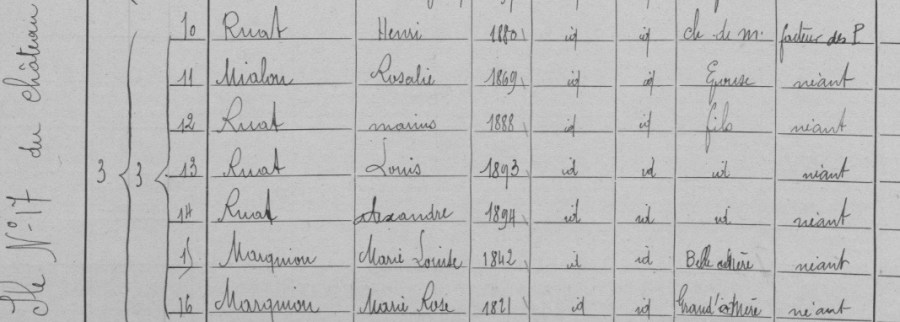 Ile N° 17 du Château
3 3
10 Ruat Henri 1880 id id ch. de m. facteur des P
11 Mialon Rosalie 1869 id id Epouse néant
12 Ruat marius 1888 id id fils néant
13 Ruat Louis 1893 id id id néant
14 Ruat Alexandre 1894 id id id néant
15 Marquion Marie Louise 1842 id id Belle mère néant
16 Marquion Marie Rose 1821 id id Grand'mère néant